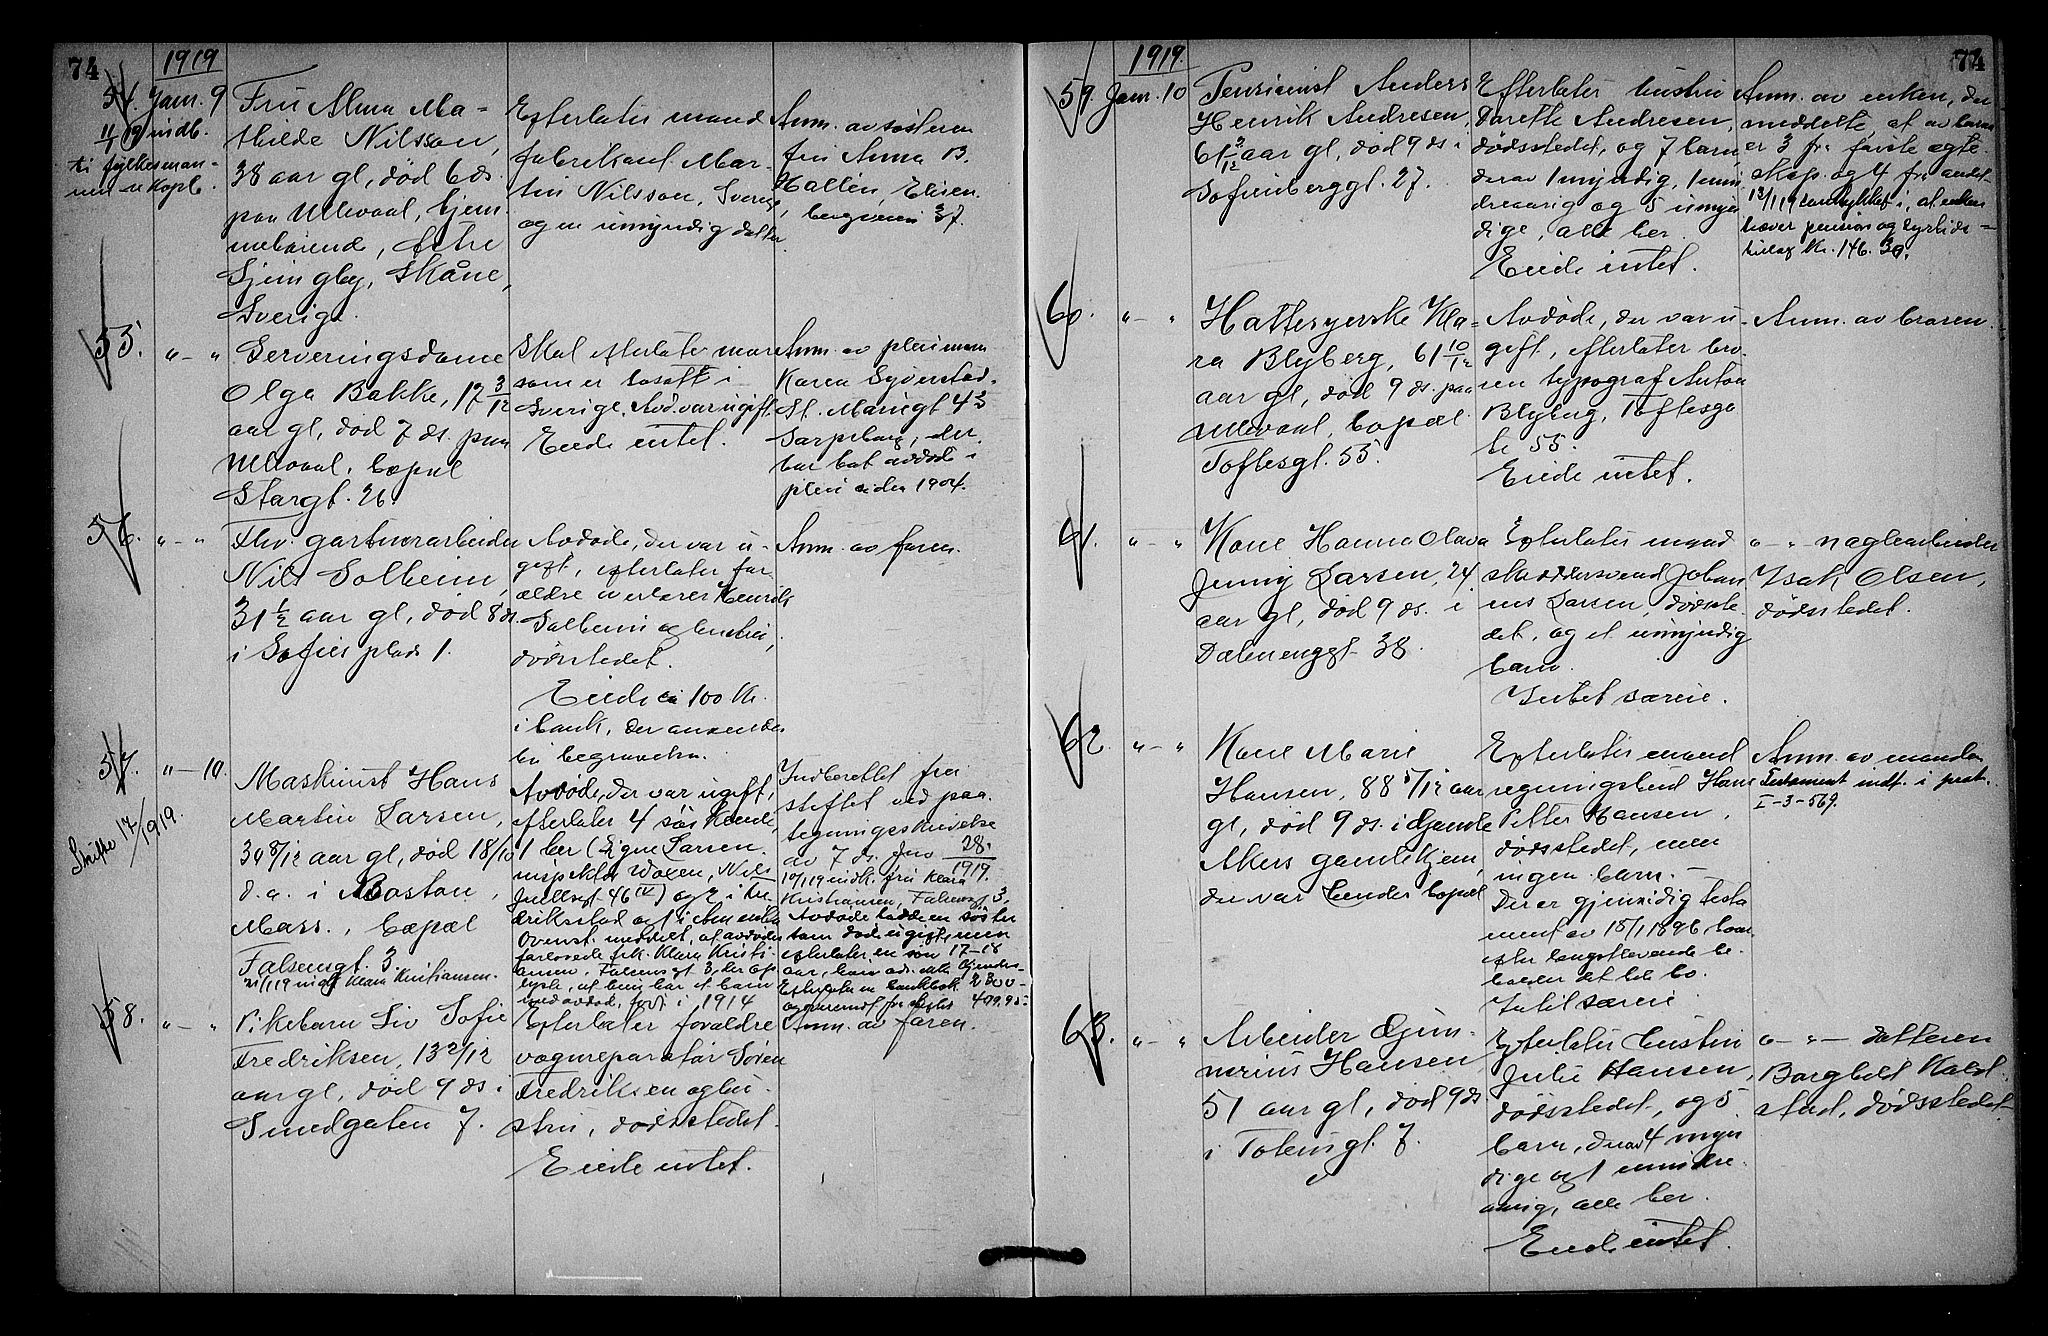 74
1919
54. Jan. 9
11/19 indb.
til fylkesman-
nen
Fru Alma Ma-
thilde Nilsson,
38 aar gl, død 6 ds.
paa Ullevaal, hjem-
mehørende,
Skåne,
Sverige.
Efterlater mand
fabrikant Mar-
tin Nilsson, Sverige
og en umyndig datter.
Anm. av søsteren
fru Anna B.
Hallén, Elisen-
bergveien 37.
55. " — "
Serveringsdame
Olga Bakke, 17 3/12
aar gl, død 7 ds. paa
Ullevaal, bopæl
Storgt. 26.
Skal efterlate mor
som er bosatt i
Sverige. Avd. var ugift.
Eiede intet.
Anm. av pleiemor
Karen
St. Mariegt 43
Sarpsborg, der
har hat avdøde i
pleie siden 1904.
56. " — "
Fhv. gartnerarbeider
Nils Solheim,
31 1/2 aar gl, død 8 ds.
i Sofies plads 1.
Avdøde, der var u-
gift, efterlater for-
ældre Henrik
Solheim og hustru,
dødsstedet.
Eiede ca 100 Kr.
i bank, der anvendes
til begravelse.
Anm. av faren.
57. " — 10.
Skifte 17/ 1919.
Maskinist Hans
Martin Larsen,
39 8/12 aar gl, død 18/10
d. a. i Boston,
Mass., bopæl
Falsensgt. 3
21/119 Klara Kristiansen.
Avdøde, der var ugift,
efterlater 4 søskende,
1 her (Signe Larsen.
inspektør Woxen, Niels
Juelsgt. 46 IV) og 2 i Fre-
driksstad og 1 i Amerika
Ovenst. meddelt, at avdødes
forlovede frk. Klara Kristi-
ansen, Falsensgt 3, her op-
lyste, at hun har et barn
med avdøde, født i 1914
Indberettet fra
skiftet ved paa-
tegningsskrivelse
av 7 ds. Jno 28.
1919.
10/119 indk. frk Klara
Kristiansen, Falsensgt 3.
Avdøde hadde en søster
som døde ugift, men
efterlater en søn 17–18
aar,
Efterlater en bankbok 2300 –
499.95.
58. " — "
Pikebarn Liv Sofie
Fredriksen, 13 2/12
aar gl, død 9 ds i
Smedgaten 7.
Efterlater forældre
vognreparatør Søren
Fredriksen og hu-
stru, dødsstedet.
Eiede intet.
Anm. av faren.
74
1919.
59. Jan. 10
Pensionist Anders
Henrik Andresen,
61 3/12 aar gl, død 9 ds i
Sofienberggt. 27.
Efterlater hustru
Dorethe Andresen,
dødsstedet, og 7 barn,
derav 1 myndig, 1 min-
dreaarig og 5 umyn-
dige, alle her.
Eiede intet.
Anm. av enken, der
meddelte, at av barna
er 3 fra første egte-
skap og 4 fra andet
13/119 samtykket i, at enken
hæver pension og dyrtids-
tillæg Kr. 146.30.
60. " — "
Hattesyerske Kla-
ra Blyberg, 61 10/12
aar gl, død 9 ds. paa
Ullevaal, bopæl
Toftesgt. 55.
Avdøde, der var u-
gift, efterlater bro-
ren typograf Anton
Blyberg, Toftesga-
te 55.
Eiede intet.
Anm. av broren.
61. " — "
Kone Hanna Olava
Jenny Larsen, 24
aar gl, død 9 ds. i
Dælenenggt. 38.
Efterlater mand
skræddersvend Johan
ens Larsen, dødsste-
det, og et umyndig
barn.
Intet særeie.
" — " naglearbeider
Isak Olsen,
dødsstedet.
62. " — "
Kone Marie
Hansen, 88 5/12 aar
gl, død 9 ds. i Gamle
Akers gamlehjem,
der var hendes bopæl
Efterlater mand
regningsbud Hans
Petter Hansen,
dødsstedet, men
ingen barn. —
Der er gjensidig testa-
ment av 15/1 1896, hvor-
efter længstlevende be-
holder det hele bo.
Intet særeie.
Anm. av manden
Testament indt. i prot.
I–3–569.
63. " — "
Arbeider Gun-
nerius Hansen
51 aar gl, død 9 ds
i Totensgt. 7.
Efterlater hustru
Julie Hansen,
dødsstedet, og 5
barn, derav 4 myn-
dige og 1 mindre-
aarig, alle her.
Eiede intet.
" — " — datteren
Borghild Kald-
stad, dødsstedet